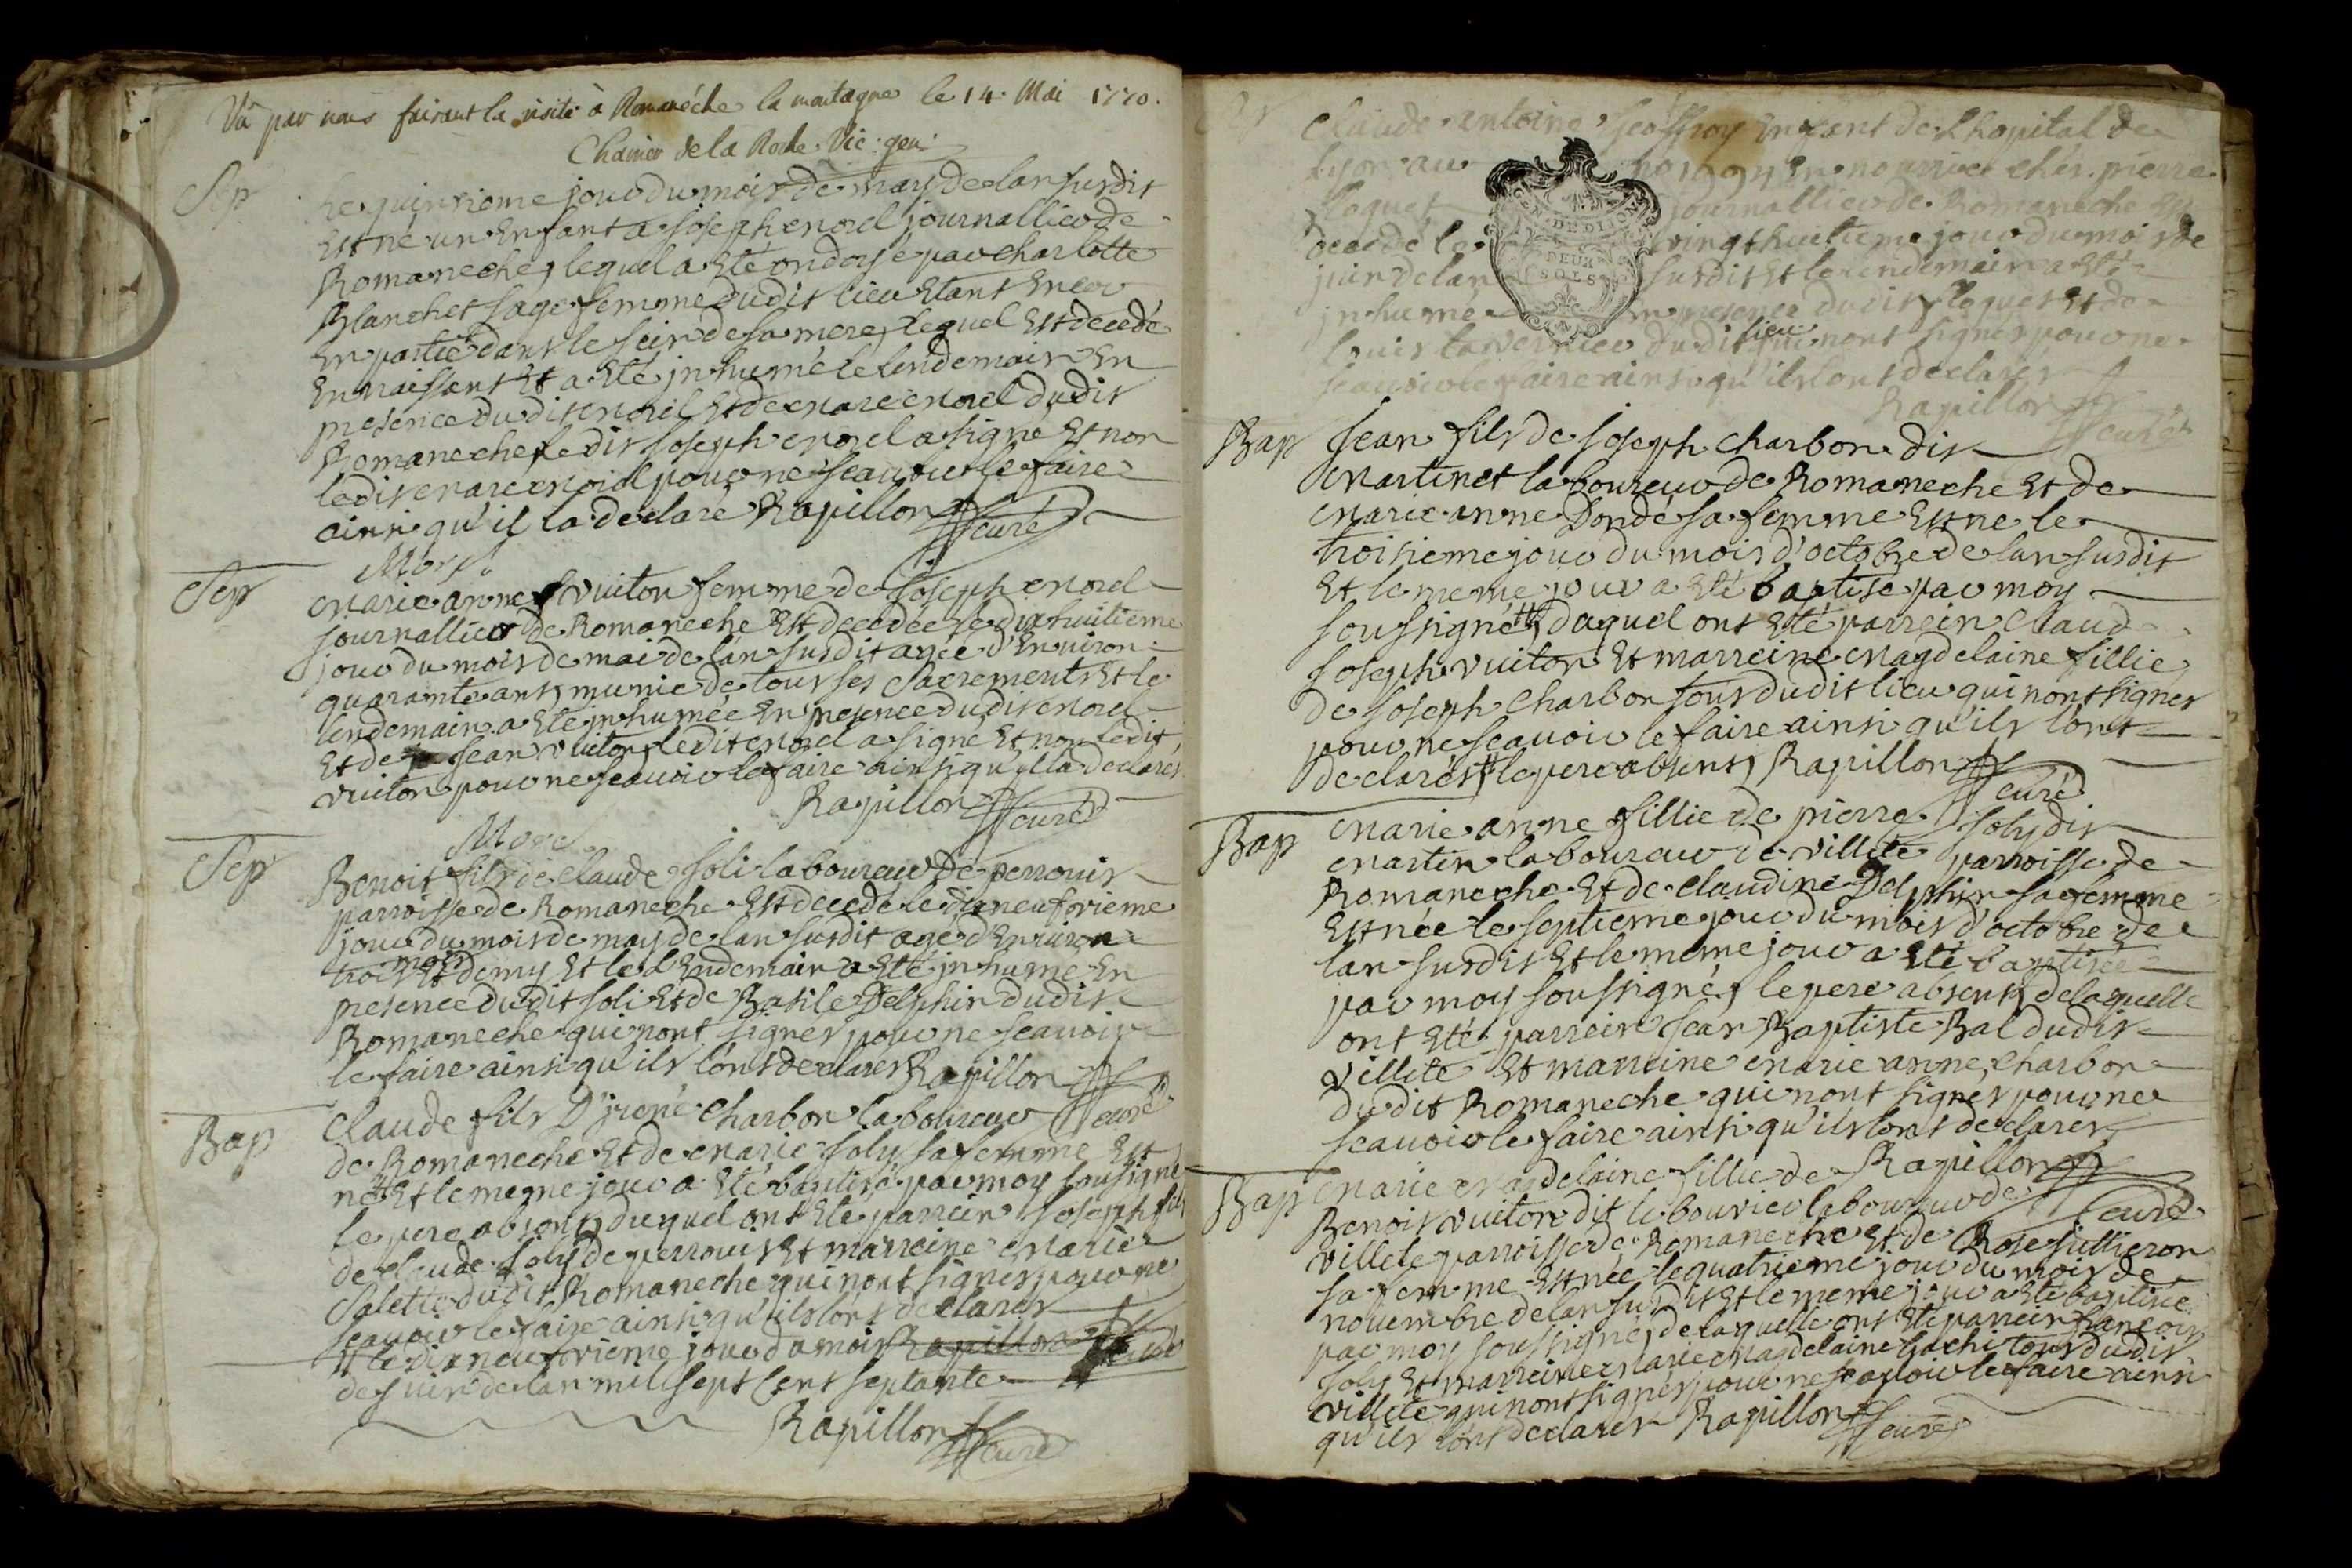 Vû par nous faisant la visite à Romanéche la montagne le 14. Mai 1770.
Chainer de la Roche. Vic. gen.
Sep
Le quinzieme jour du mois de may de lan susdit
Est né un Enfant a Joseph morel journallier de
Romaneche, lequel a Eté ondoyé par charlotte
Blanchet sage femme dudit lieu Etant Encor
En partie dans le sein de sa mere, lequel Est decedé
En naissant Et a Eté jnhumé le lendemain En
presence dudit morel Et de marc morel dudit
Romaneche, ledit Joseph morel a signé Et non
ledit marc morel pour ne sçauoir le faire
ainsi qu'il la declaré Rapillon curé
Mort
Sep
marie anne vuiton femme de Joseph morel
journallier de Romaneche Est decedée le dixhuitieme
jour du mois de mai de lan susdit agée d'Enuiron
quarante ans, munie de tous ses sacrements Et le
lendemain a Eté jnhumée En presence dudit morel
Et de Jean vuiton, ledit morel a signé Et non ledit
vuiton pour ne sçauoir le faire ainsi qu'il la declaré
Rapillon curé
Mort
Sep
Benoit fils de claude Joli laboureur de perrouis
parroisse de Romaneche Est decedé le dixneufvieme
jour du mois de may de lan susdit agé d'Enuiron
trois mois Et demy Et le lEndemain a Eté jnhumé En
presence dudit Joli Et de Basile Delphin dudit
Romaneche qui n'ont signés pour ne sçauoir
le faire ainsi qu'ils l'ont declarés Rapillon curé
Bap
Claude fils D'jrené Charbon laboureur
de Romaneche Et de marie Joly sa femme Est
né # Et le meme jour a Eté baptisé par moy sousigné
le pere absent, duquel ont Eté parrein Joseph fils
de claude Joly de perrouis Et marreine marie
Salette dudit Romaneche qui n'ont signés pour ne
sçauoir le faire ainsi qu'ils l'ont declarés
# le dixneufvieme jour du mois Rapillon curé
de Juin de lan mil sept Cent septante
Rapillon curé
Claude antoine Geoffray Enfant de l'hopital de
Lyon au no En nourrice chés pierre
Floquet journallier de Romaneche Est
decedé le vingt huitieme jour du mois de
juin de lan susdit Et le lendemain a Eté
jnhumé En presence dudit Floquet Et de
Louis dudit lieu qui n'ont signés pour ne
sçauoir le faire ainsi qu'ils l'ont declarés
Rapillon curé
GEN. DE DIJON
DEUX
SOLS
Bap
Jean fils de Joseph Charbon dit
martinet laboureur de Romaneche Et de
marie anne Dondé sa femme Est né le
troisieme jour du mois d'octobre de lan susdit
Et le meme jour a Eté baptisé par moy
soussigné #, duquel ont Eté parrein Claud
Joseph vuiton Et marreine magdelaine fillie
de Joseph Charbon tous dudit lieu qui n'ont signés
pour ne sçauoir le faire ainsi qu'ils l'ont
declarés # le pere absent, Rapillon curé
Bap
marie anne fillie de pierre Joly dit
martin laboureur de villete parroisse de
Romaneche Et de Claudine Delphin sa femme
Est née le septieme jour du mois d'octobre de
lan susdit Et le meme jour a Eté baptisée
par moy soussigné, le pere absent, de laquelle
ont Eté parrein Jean Baptiste Bal dudit
villete Et marreine marie anne Charbon
dudit Romaneche qui n'ont signés pour ne
sçauoir le faire ainsi qu'ils l'ont declarés,
Rapillon curé
Bap
marie magdelaine fillie de
Benoit vuiton dit le bouvier laboureur de
villete parroisse de Romaneche Et de Rose Jullieron
sa femme Est née le quatrieme jour du mois de
nouembre de lan susdit Et le meme jour a Eté baptisée
par moy soussigné, de laquelle ont Eté parrein françois
Joly Et marreine marie magdelaine tous dudit
villete qui n'ont signés pour ne sçauoir le faire ainsi
qu'ils l'ont declarés Rapillon curé